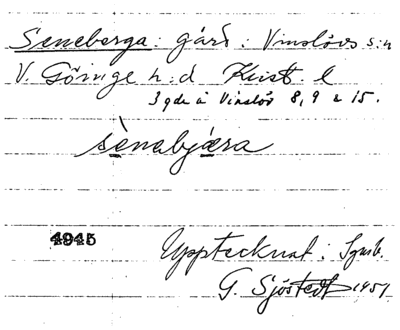 Seneberga: gård: Vinslövs s:n
V. Göinge h:d Krist. l
3 gdr å Vinslöv 8, 9 & 15.
sènabjæra
4945
Upptecknat:
G. Sjöstedt 1951